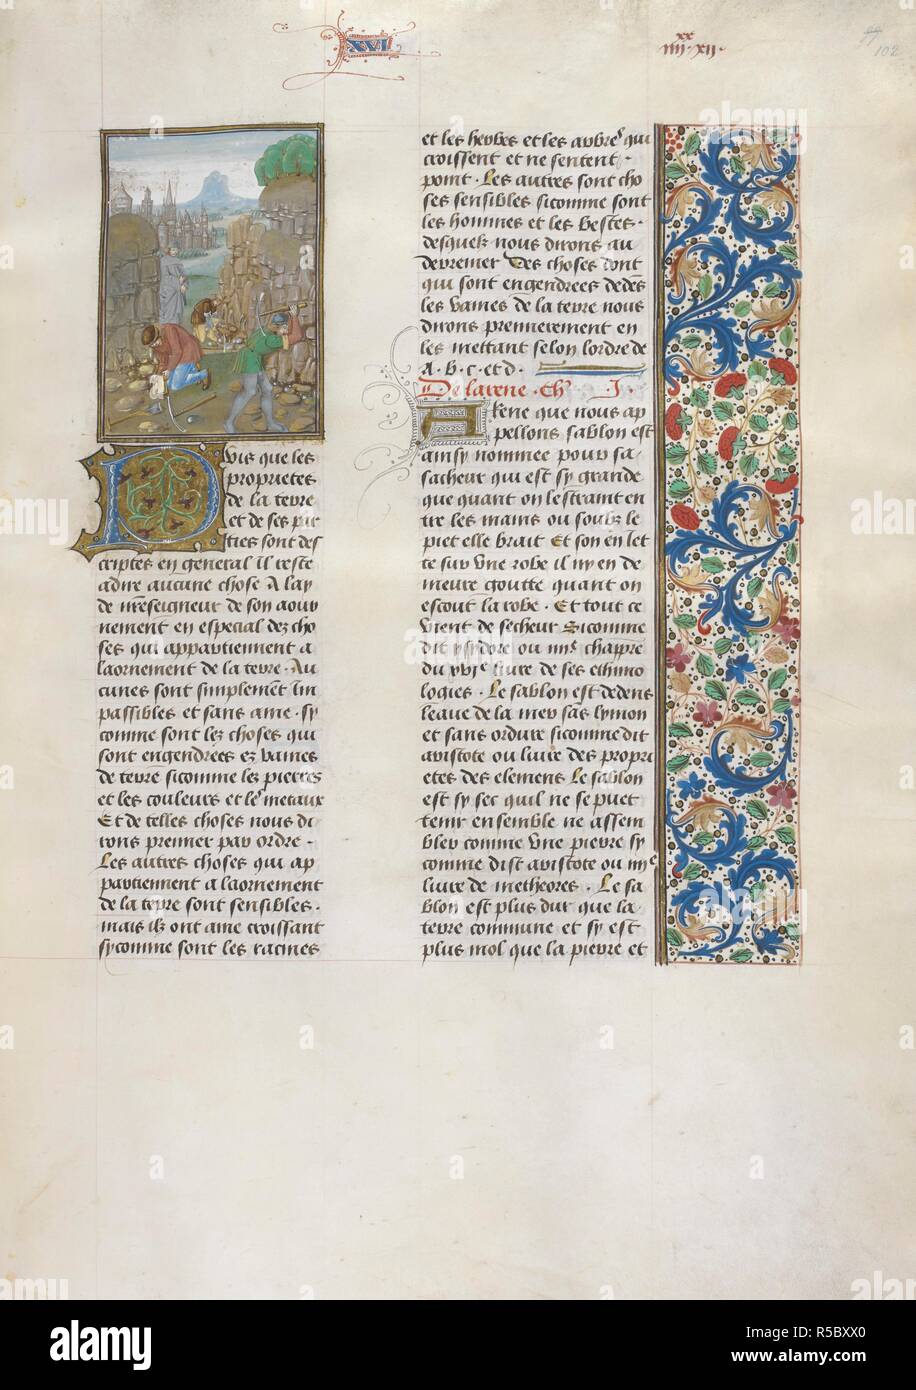 XVI
xx
iiii xii
102
Puis que les
proprietes
de la terre
et de ses par
ties sont des
criptes en general il reste
a dire aucune chose A lay
de nreseigneur de son aour
nement en especial dez cho
ses qui appartiennent a
laornement de la terre. Au
cunes sont simplement im
passibles et sans ame. sy
comme sont les choses qui
sont engendrees ez vaines
de terre sicomme lez pierres
et les couleurs et les metaux
Et de telles choses nous di
rons premier par ordre.
Les autres choses qui ap
partiennent a laornement
de la terre sont sensibles.
mais ilz ont ame croissant
sycomme sont les racines
et les herbes et les arbres qui
croissent et ne sentent
point. Les autres sont cho
ses sensibles sicomme sont
les hommes et les bestes.
desquelz nous dirons au
derrenier Des choses dont
qui sont engendrees dedes
les vaines de la terre nous
dirons premierement en
les mettant selon lordre de
A. B. c. et d.
De larene. Ch. I.
Arene que nous ap
pellons sablon est
ainsy nommee pour sa
sacheur qui est sy grande
que quant on lestraint en
tre les mains ou soubz le
piet elle brait Et son en let
te sur vne robe il ny en de
meure goutte quant on
escout la robe. Et tout ce
vient de secheur Sicomme
dit ysydore ou iiie chappre
du xvie liure de ses ethimo
logies. Le sablon est dedens
leaue de la mer sas lymon
et sans ordure sicomme dit
aristote ou liure des propri
etes des elemens Le sablon
est sy sec quil ne se puet
tenir ensemble ne assem
bler comme vne pierre sy
comme dist aristote ou iiie
liure de metheores. Le sa
blon est plus dur que la
terre commune et sy est
plus mol que la pierre et
alamy
Image ID: R5BXX0
www.alamy.com